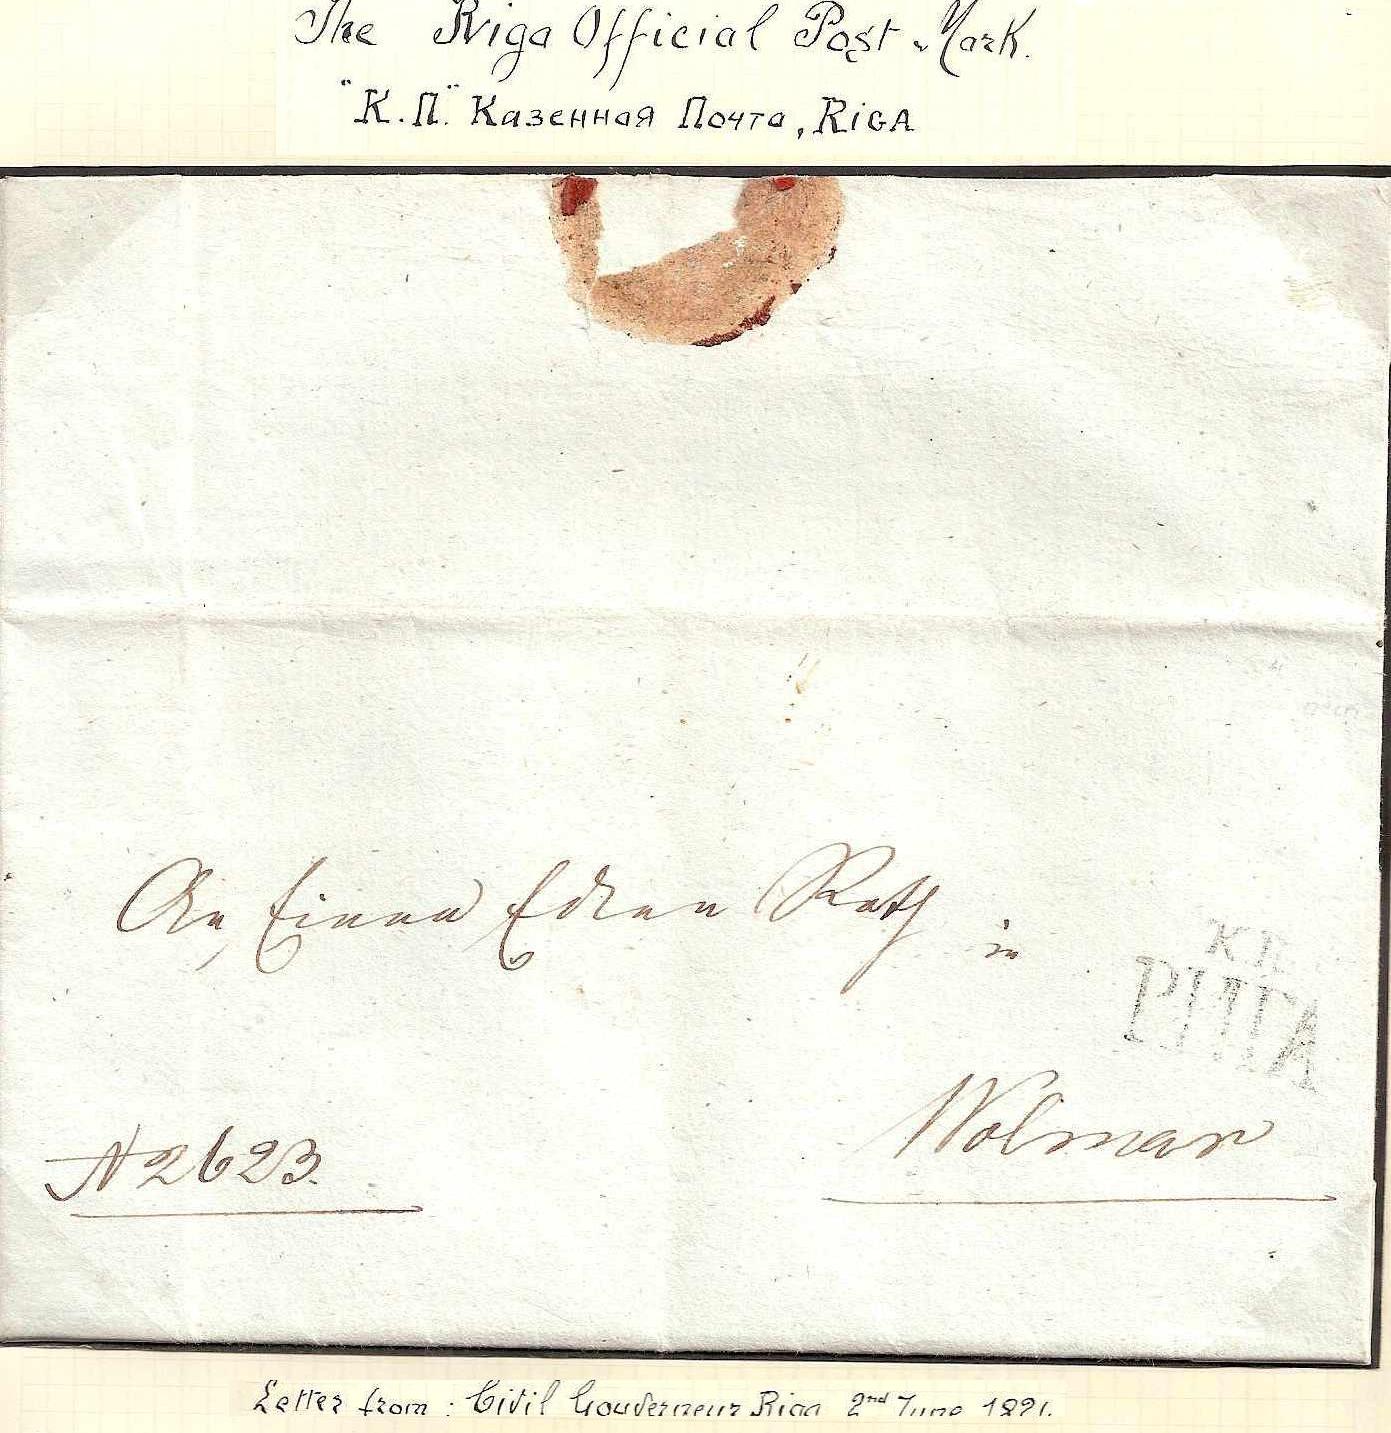 The Riga Official Post-Mark.
"К.П." Казенная Почта, RIGA
An Einen Edlen Rath in
К.П.
РИГА
Wolmar
N 2623.
Letter from: Civil Gouverneur Riga 2nd June 1821.